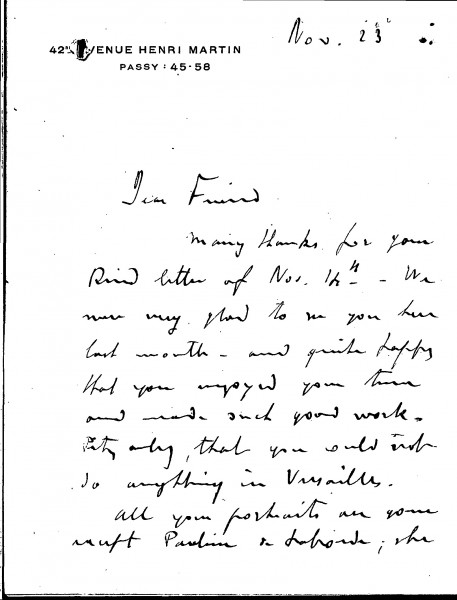 Nov. 23
42 AVENUE HENRI MARTIN
PASSY : 45-58
Dear Friend
Many thanks for your
kind letter of Nov. 14th - We
were very glad to see you here
last month - and quite happy
that you enjoyed your time
and made such good work.
Pity only, that you could not
do anything in Versailles.
All your portraits are gone
except Pauline de Laborde; she